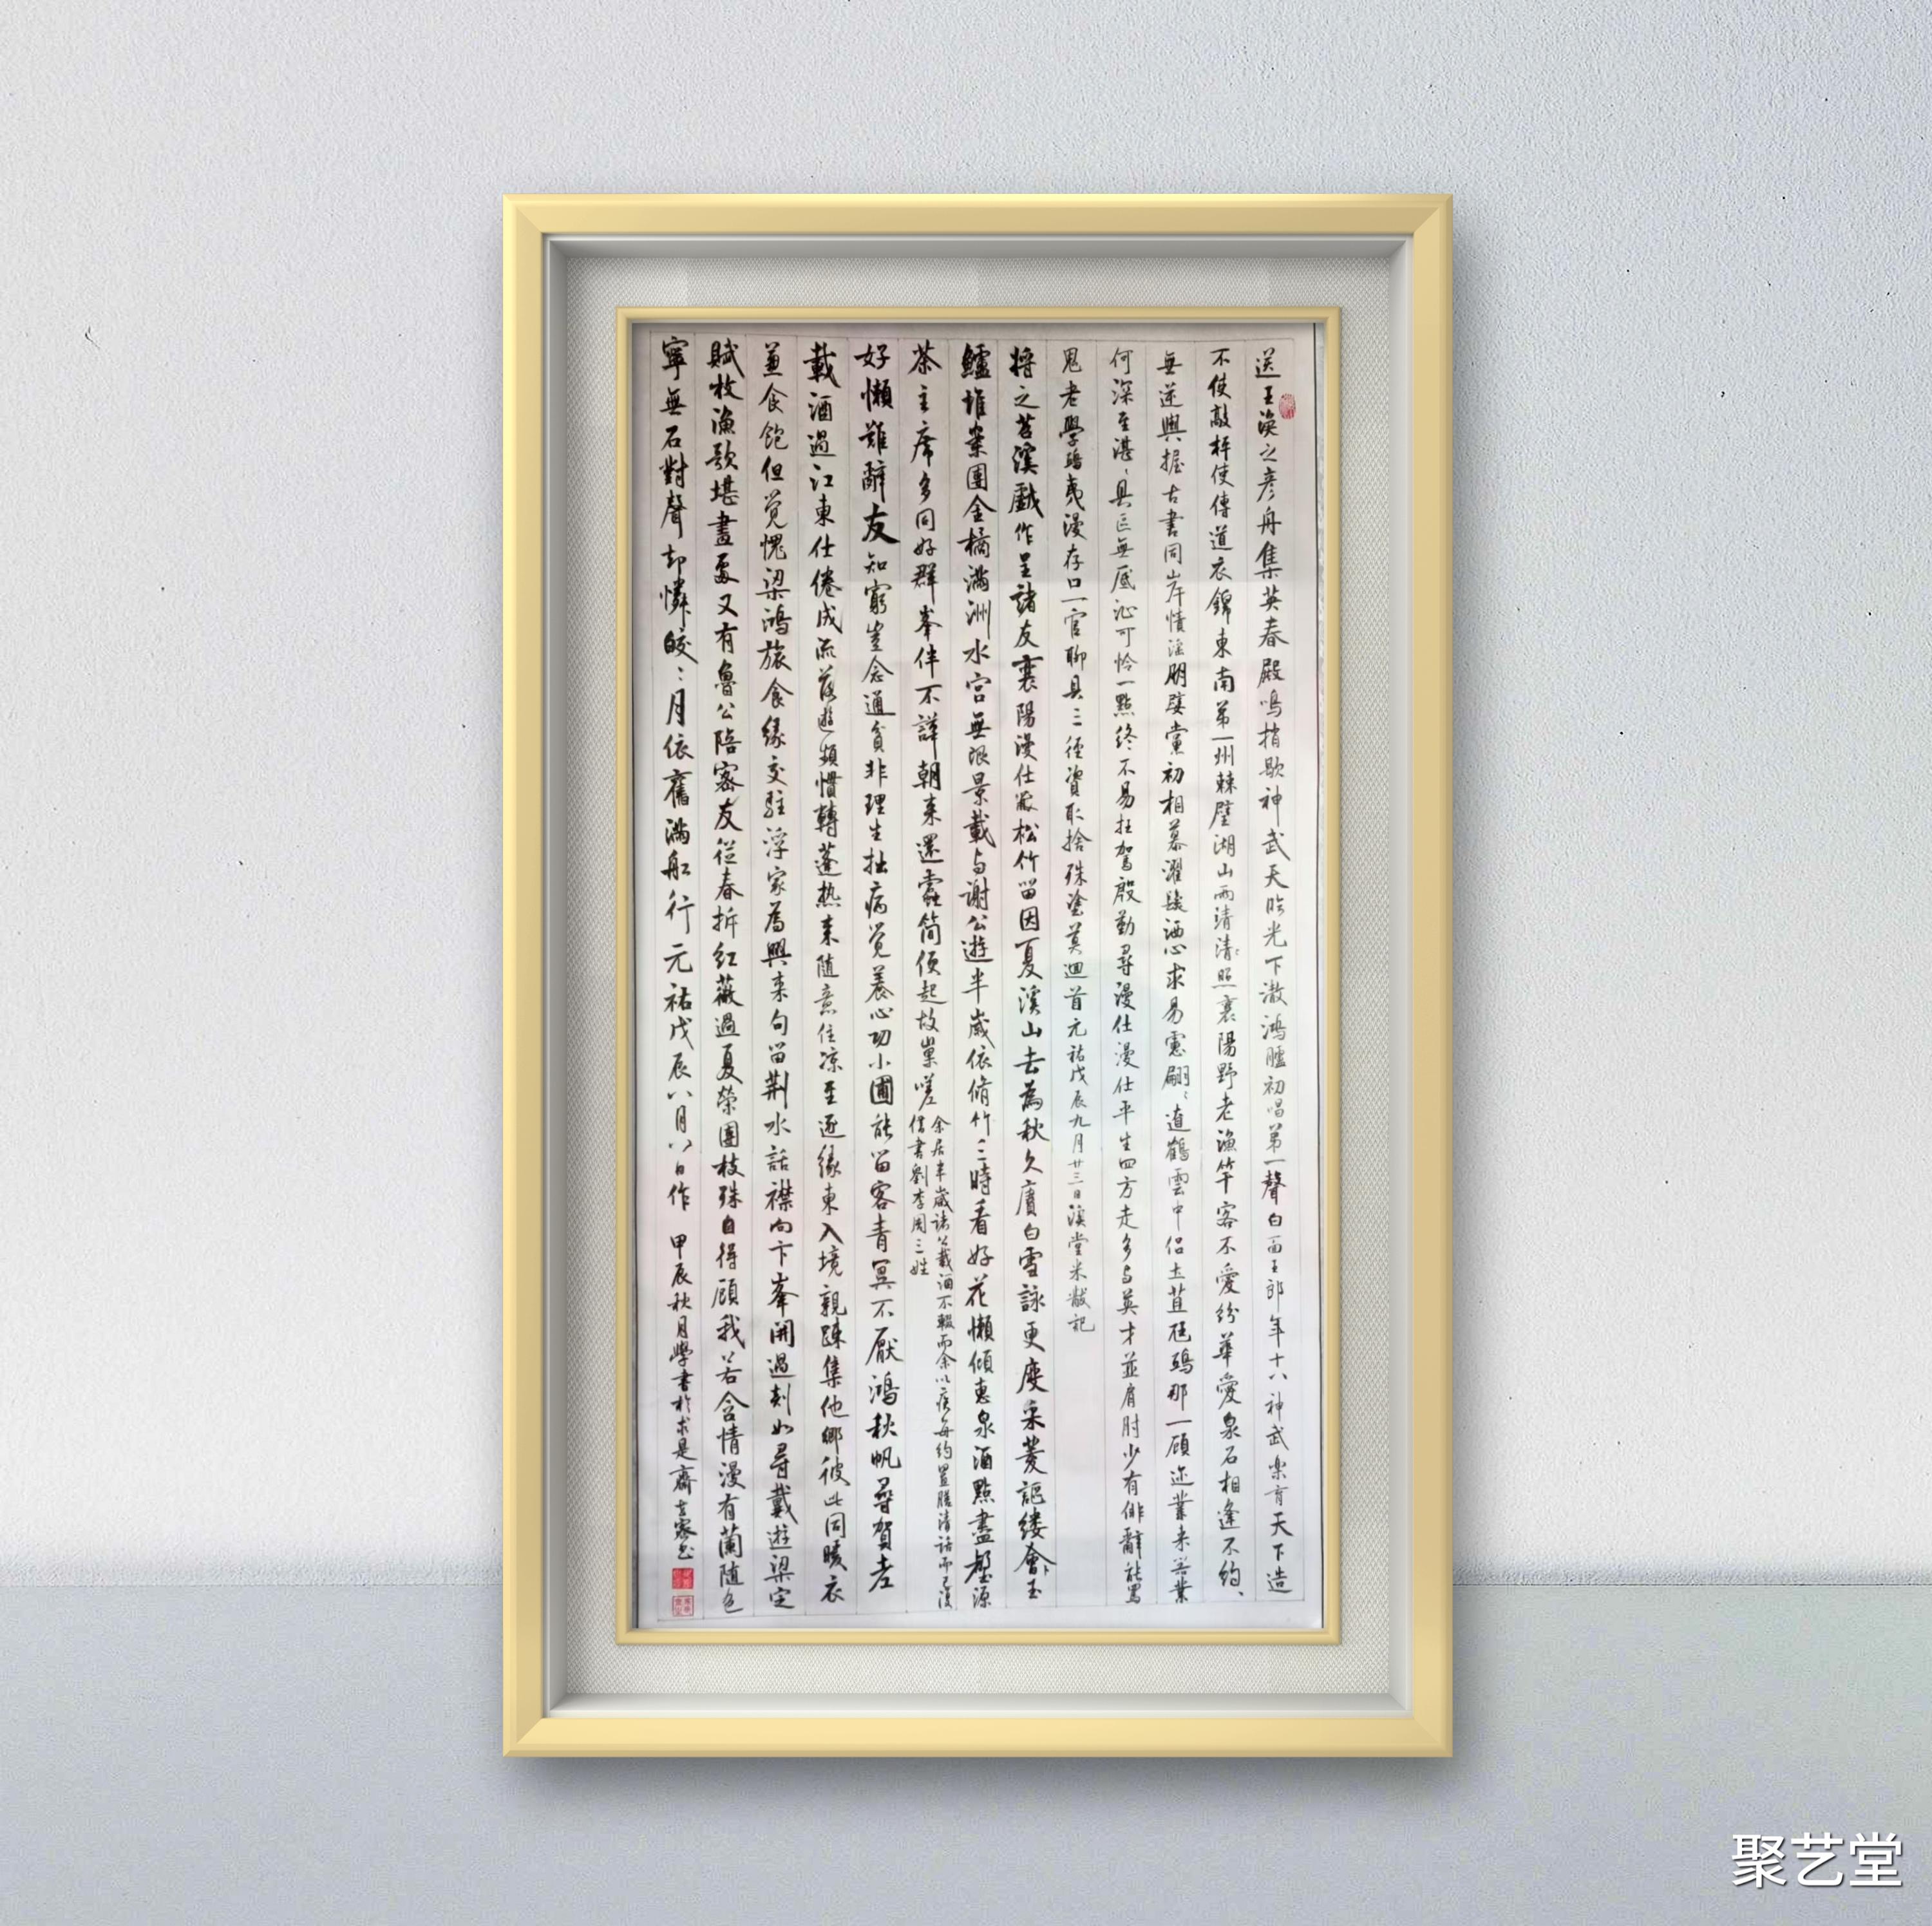 送王渙之彦舟集英春殿鳴梢歇神武天臨光下澈鴻臚初唱第一聲白面王郎年十八神武樂育天下造
不使敲枰使傳道衣錦東南第一州棘璧湖山兩清清照襄陽野老漁竿客不愛紛華愛泉石相逢不約
無逆與握古書同岸幘淫朋嬖黨初相慕濯髮洒心求易慮翩〻遼鶴雲中侣土苴尫鴟那一顧迩業來無業
何深至湛〻具區無底沁可怜一點終不易枉駕殷勤尋漫仕漫仕平生四方走多与英才並肩肘少有俳辭能罵
鬼老學鴟夷漫存口一官聊具三徑資取捨殊塗莫迴首元祐戊辰九月廿三日溪堂米黻記
將之苕溪戲作呈諸友襄陽漫仕黻松竹留因夏溪山去為秋久賡白雪詠更度采菱謳縷會玉
鱸堆案團金橘滿洲水宮無限景載与謝公遊半歲依脩竹三時看好花懶傾惠泉酒點盡壑源
茶主席多同好群峯伴不譁朝來還蠹簡便起故巢嗟
余居半歲諸公載酒不輟而余以疾每約置膳清話而已復
借書劉李周三姓
好懶難辭友知窮豈念通貧非理生拙病覺養心功小圃能留客青冥不厭鴻秋帆尋賀老
載酒過江東仕倦成流落遊頻慣轉蓬热來随意住凉至逐緣東入境親疎集他鄉彼此同暖衣
兼食飽但覺愧梁鴻旅食緣交駐浮家為興來句留荆水話襟向卞峯開過剡如尋戴遊梁定
賦枚漁歌堪畫處又有魯公陪密友從春拆紅薇過夏榮團枝殊自得顧我若含情漫有蘭随色
寧無石對聲却憐皎〻月依舊滿舡行元祐戊辰八月八日作 甲辰秋月學書於求是齋
聚艺堂